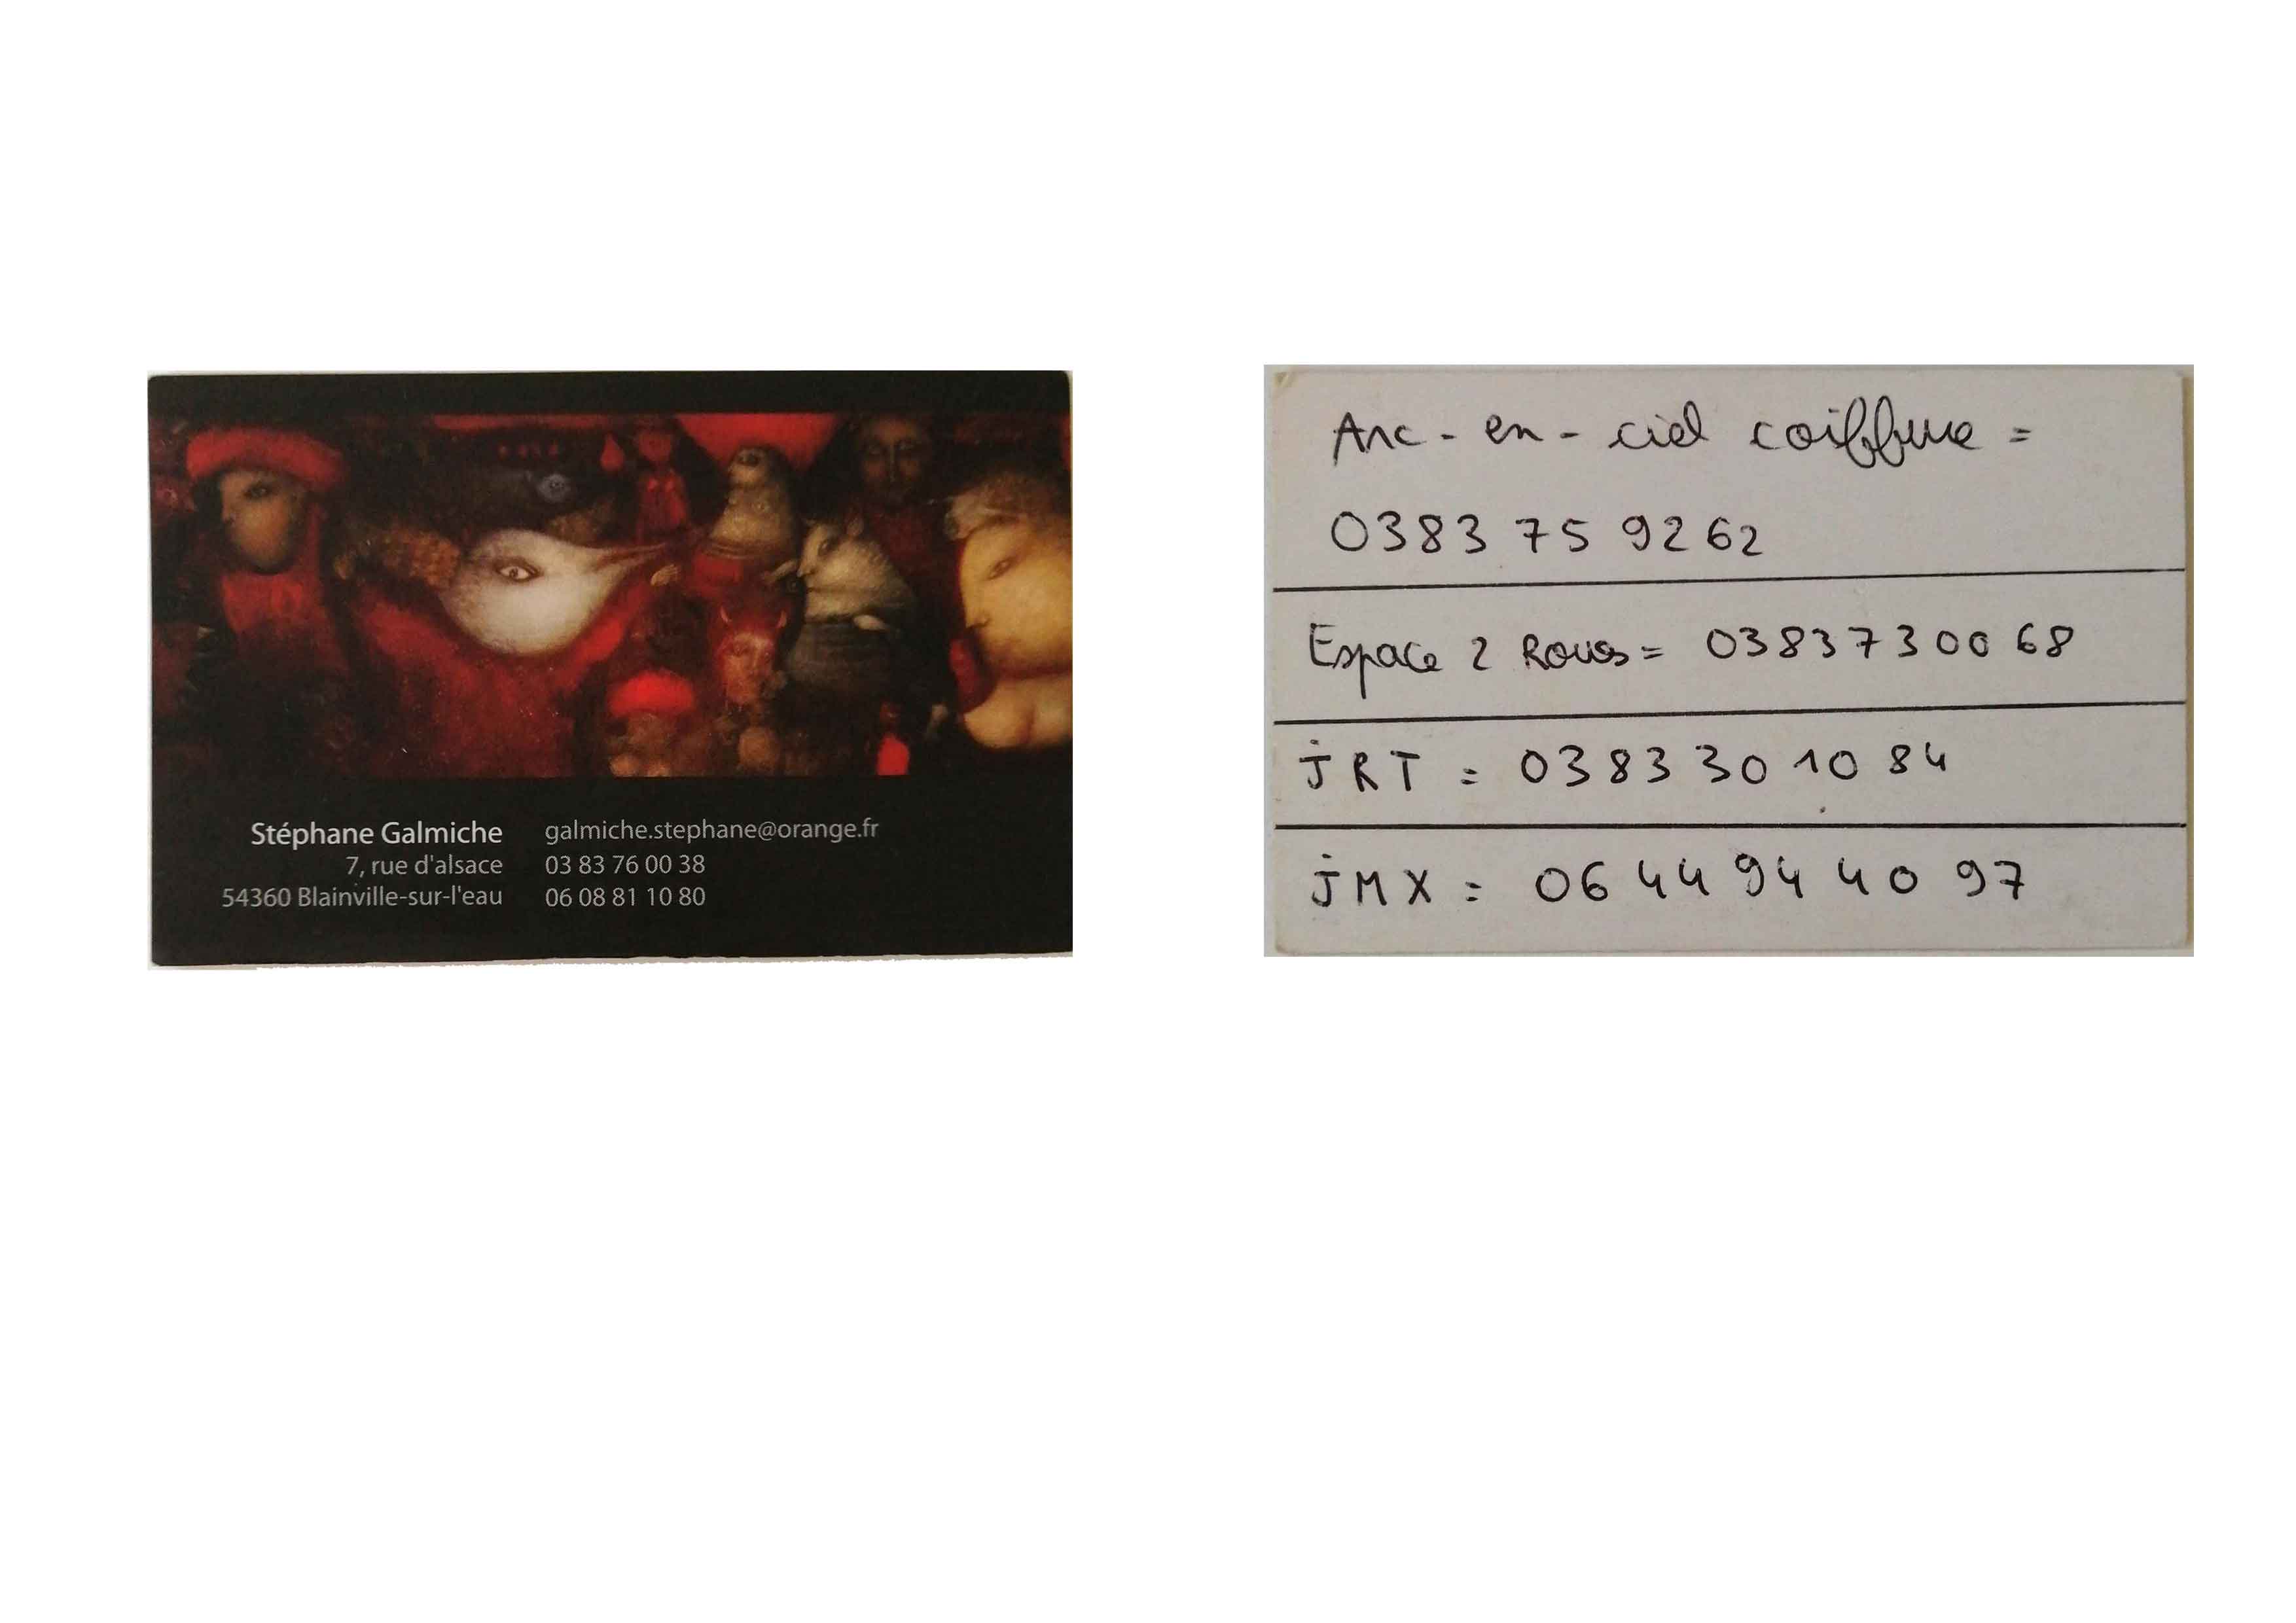 Stéphane Galmiche
7, rue d'alsace
54360 Blainville-sur-l'eau
galmiche.stephane@orange.fr
03 83 76 00 38
06 08 81 10 80
Arc-en-ciel coiffure =
0383 75 92 62
Espace 2 Roues = 0383730068
JRT = 0383 30 10 84
JMX = 06 44 94 40 97